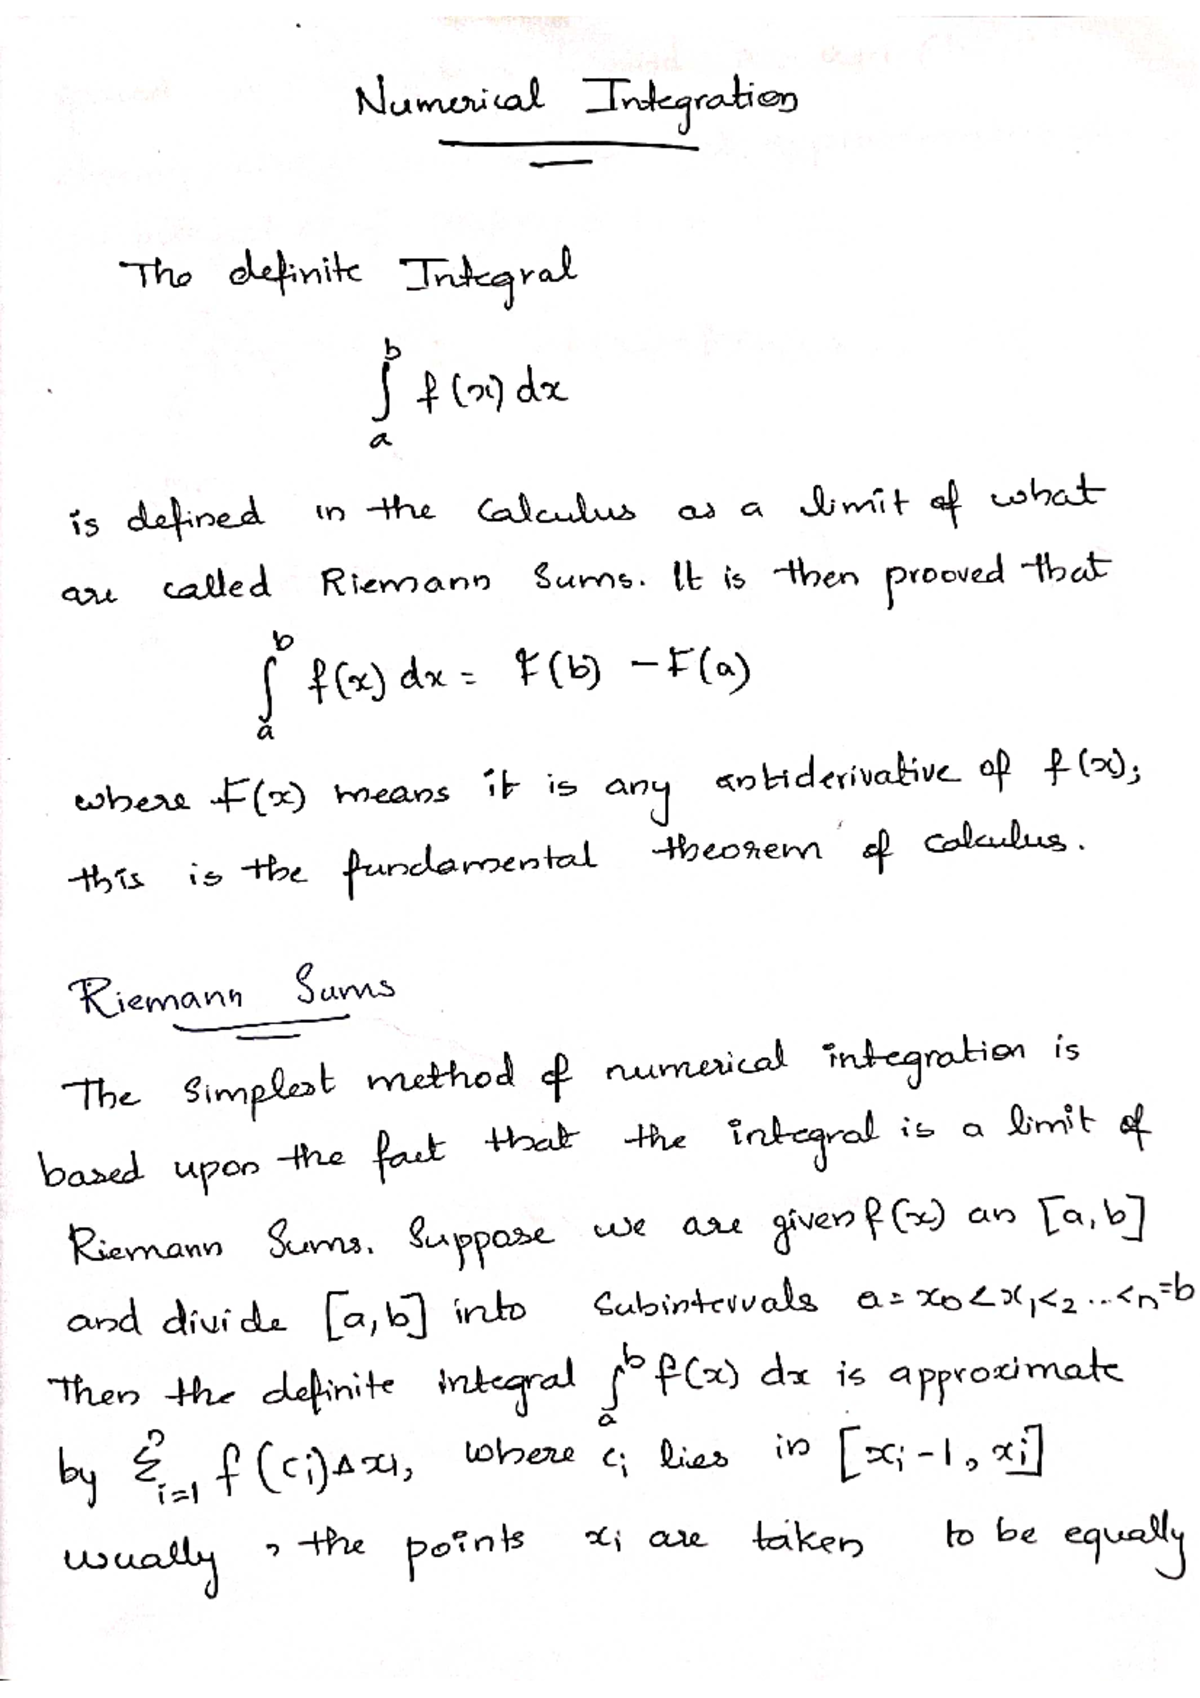 Numerical Integration
The definite Integral
∫_a^b f(x) dx
is defined in the Calculus as a limit of what
are called Riemann Sums. It is then prooved that
∫_a^b f(x) dx = F(b) - F(a)
where F(x) means it is any antiderivative of f(x);
this is the fundamental theorem of calculus.
Riemann Sums
The Simplest method of numerical integration is
based upon the fact that the integral is a limit of
Riemann Sums. Suppose we are given f(x) an [a,b]
and divide [a,b] into Subintervals a = x0 < x1 < 2 ... < n = b
Then the definite integral ∫_a^b f(x) dx is approximate
by Σ_{i=1}^n f(ci) Δxi, where ci lies in [xi - 1, xi]
usually, the points xi are taken to be equally